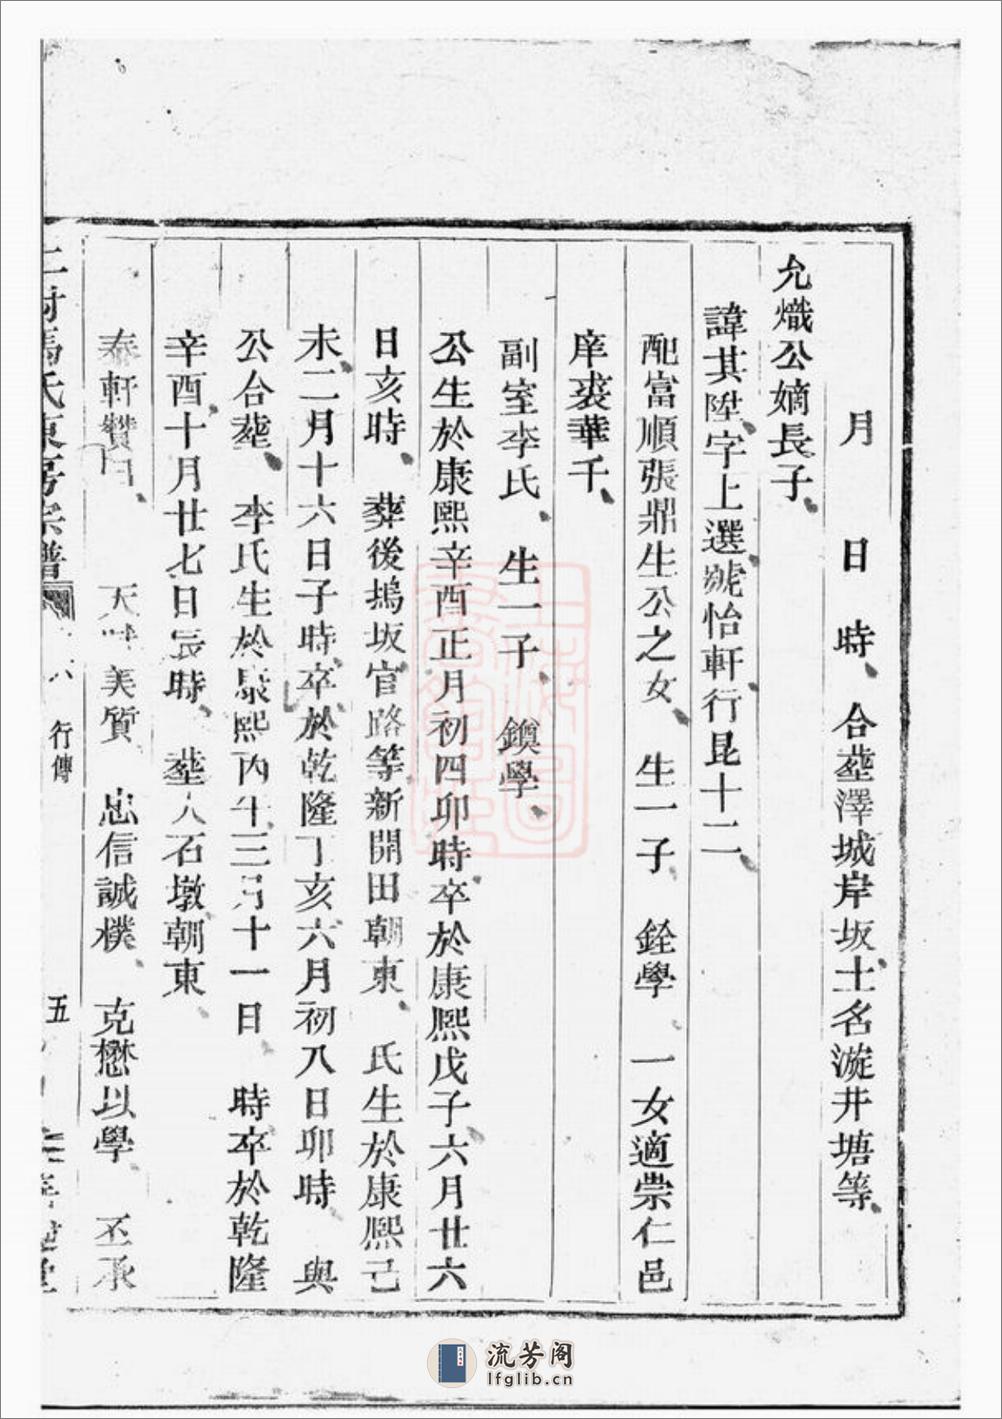 月　日　時、合塟澤城岸坂土名漩井塘等、
允熾公嫡長子、
諱其陞、字上選、號怡軒、行昆十二、
配富順張鼎生公之女、生一子　銓學　一女適崇仁邑
庠裘華千、
副室李氏、生一子、鎮學、
公生於康熙辛酉正月初四卯時、卒於康熙戊子六月廿六
日亥時、葬後塢坂官路等新開田朝東、氏生於康熙己
未二月十六日子時、卒於乾隆丁亥六月初八日卯時、與
公合塟、李氏生於康熙丙午三月十一日　時卒於乾隆
辛酉十月廿七日辰時、塟大石墩朝東、
泰軒贊曰、天　美質　忠信誠樸、克懋以學　丕承
氏東房宗譜　行傳　五　堂
上海圖書館藏
流芳阁
lfglib.cn